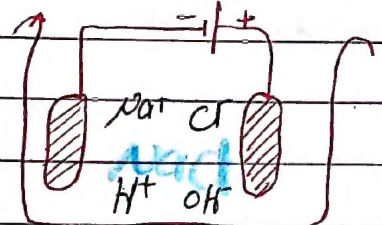 - +
Na+ Cl-
NaCl
H+ OH-